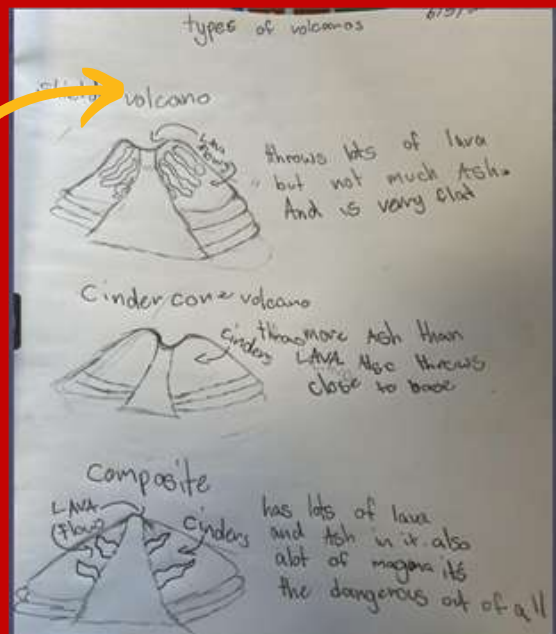 types of volcanos
Shield volcano
LAVA
flows
throws lots of lava
but not much Ash.
And is verry flat
Cinder cone volcano
cinders
throws more Ash than
LAVA Also throws
close to base
composite
LAVA
(flow)
cinders
has lots of lava
and Ash in it also
alot of magma its
the dangerous out of all